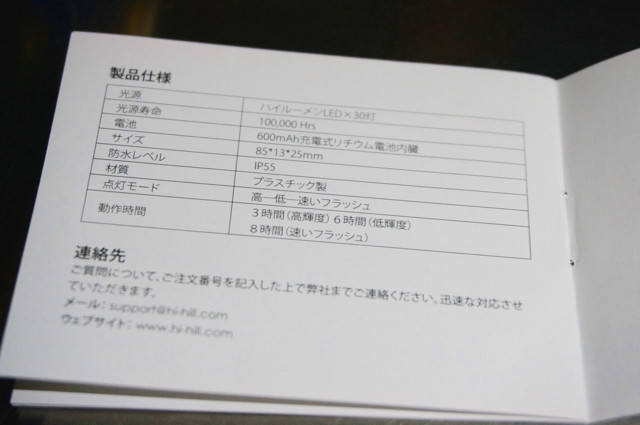 製品仕様
光源 ハイルーメンLED×30灯
光源寿命 100,000 Hrs
電池 600mAh充電式リチウム電池内臓
サイズ 85*13*25mm
防水レベル IP55
材質 プラスチック製
点灯モード 高—低—速いフラッシュ
動作時間 3時間(高輝度)6時間(低輝度)
8時間(速いフラッシュ)
連絡先
ご質問について、ご注文番号を記入した上で弊社までご連絡ください。迅速な対応させ
ていただきます。
メール: support@hi-hill.com
ウェブサイト: www.hi-hill.com